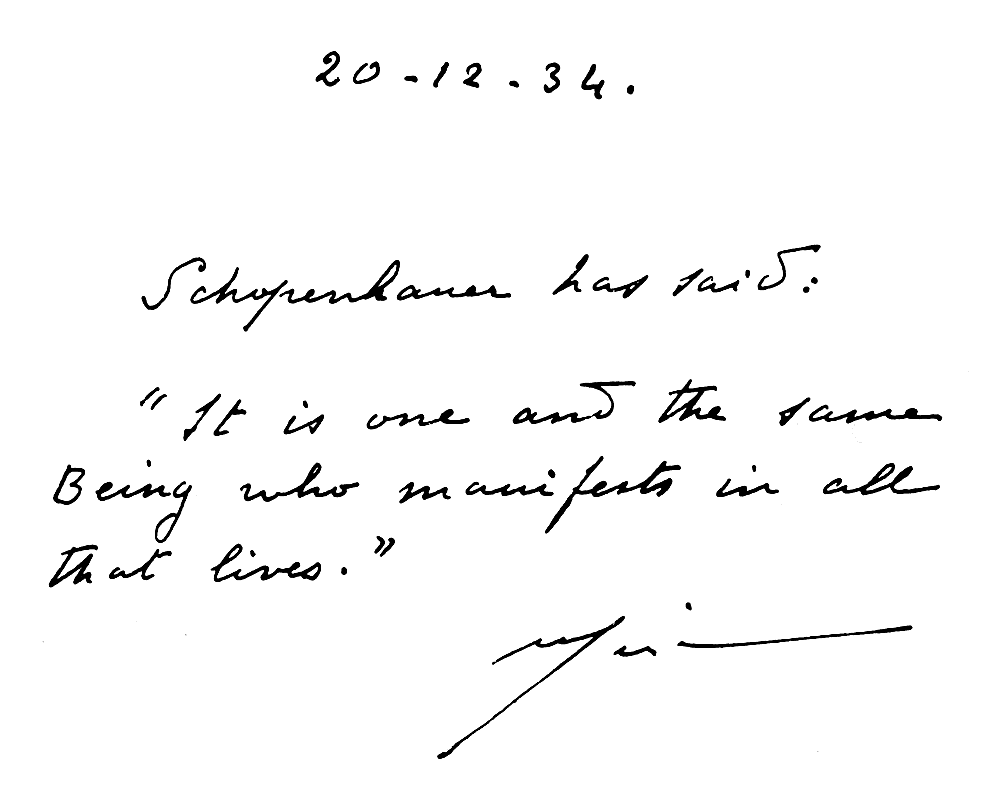 20-12-34.
Schopenhauer has said:
"It is one and the same
Being who manifests in all
that lives."